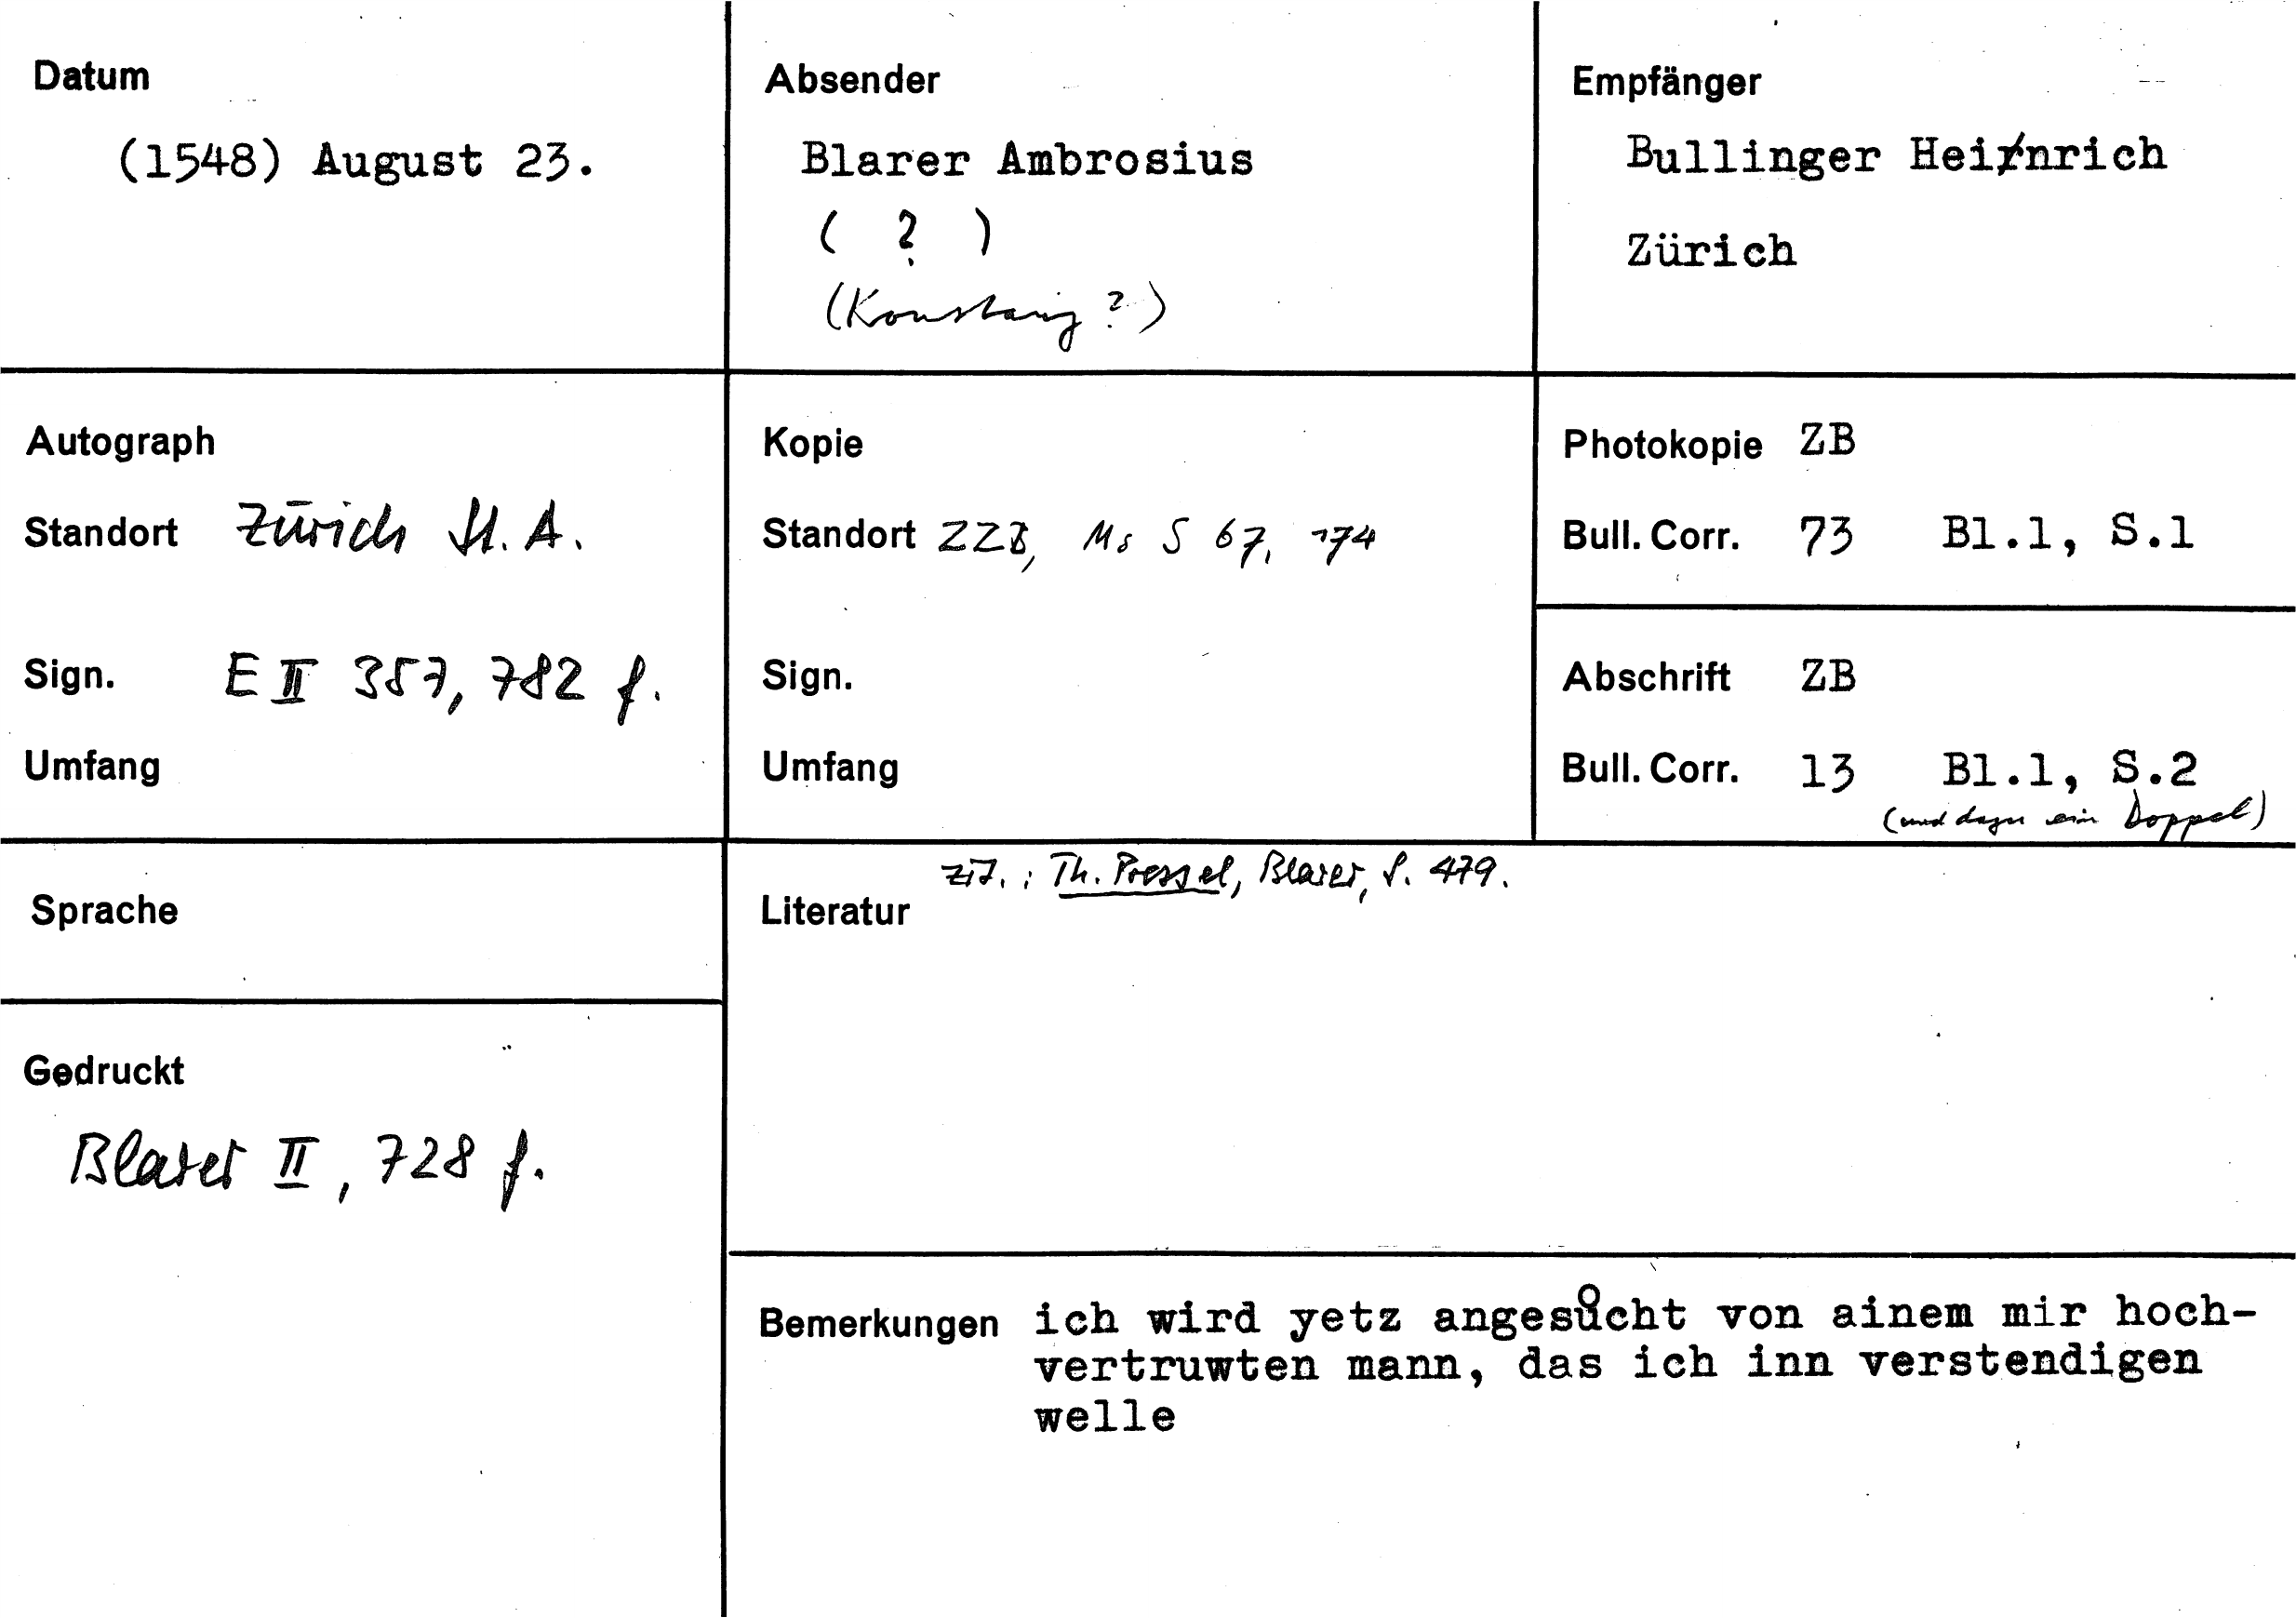 Datum
(1548) August 23.
Absender
Blarer Ambrosius
( ? )
(Konstanz ?)
Empfänger
Bullinger Heinrich
Zürich
Autograph
Standort Zürich St. A.
Sign. E II 357, 782 f.
Umfang
Kopie
Standort ZZB, Ms S 67, 174
Sign.
Umfang
Photokopie ZB
Bull. Corr. 73 Bl.1, S.1
Abschrift ZB
Bull. Corr. 13 Bl.1, S.2
(und dazu ein Doppel)
Sprache
Gedruckt
Blarer II, 728 f.
zit. : Th. Pressel, Blarer, S. 479.
Literatur
Bemerkungen ich wird yetz angesůcht von ainem mir hoch-
vertruwten mann, das ich inn verstendigen
welle